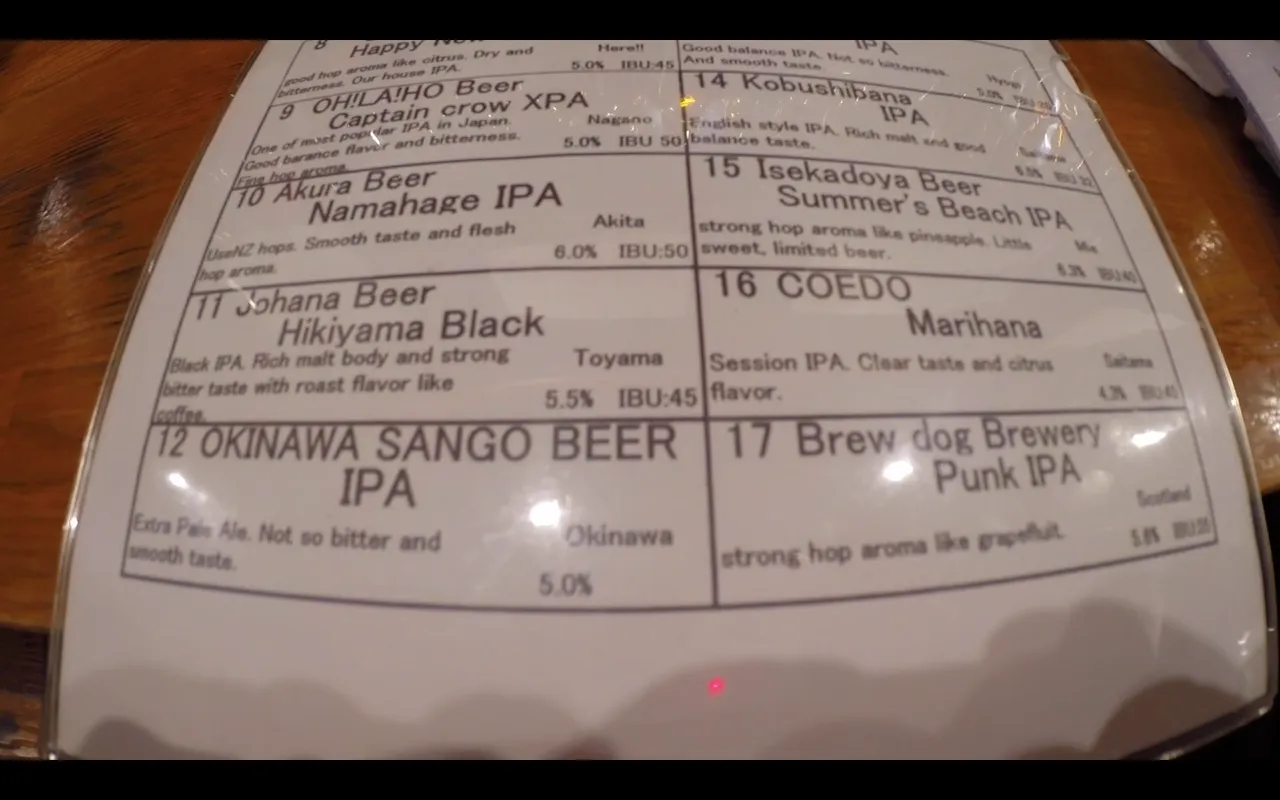 8 Happy
Here!!
good hop aroma like citrus. Dry and
bitterness. Our house IPA.
5.0% IBU:45
9 OH!LA!HO Beer
Captain crow XPA
One of most popular IPA in Japan.
Nagano
Good barance flavor and bitterness.
5.0% IBU 50
Fine hop aroma.
10 Akura Beer
Namahage IPA
UseNZ hops. Smooth taste and flesh
Akita
hop aroma.
6.0% IBU:50
11 Johana Beer
Hikiyama Black
Black IPA. Rich malt body and strong
Toyama
bitter taste with roast flavor like
5.5% IBU:45
coffee.
12 OKINAWA SANGO BEER
IPA
Extra Pale Ale. Not so bitter and
Okinawa
smooth taste.
5.0%
IPA
Good balance IPA. Not so bitterness.
Hyogo
And smooth taste.
5.0%
14 Kobushibana
IPA
English style IPA. Rich malt and good
Saitama
balance taste.
15 Isekadoya Beer
Summer's Beach IPA
strong hop aroma like pineapple. Little
Mie
sweet, limited beer.
6.3% IBU:40
16 COEDO
Marihana
Session IPA. Clear taste and citrus
Saitama
flavor.
17 Brew dog Brewery
Punk IPA
Scotland
strong hop aroma like grapefluit.
5.6%